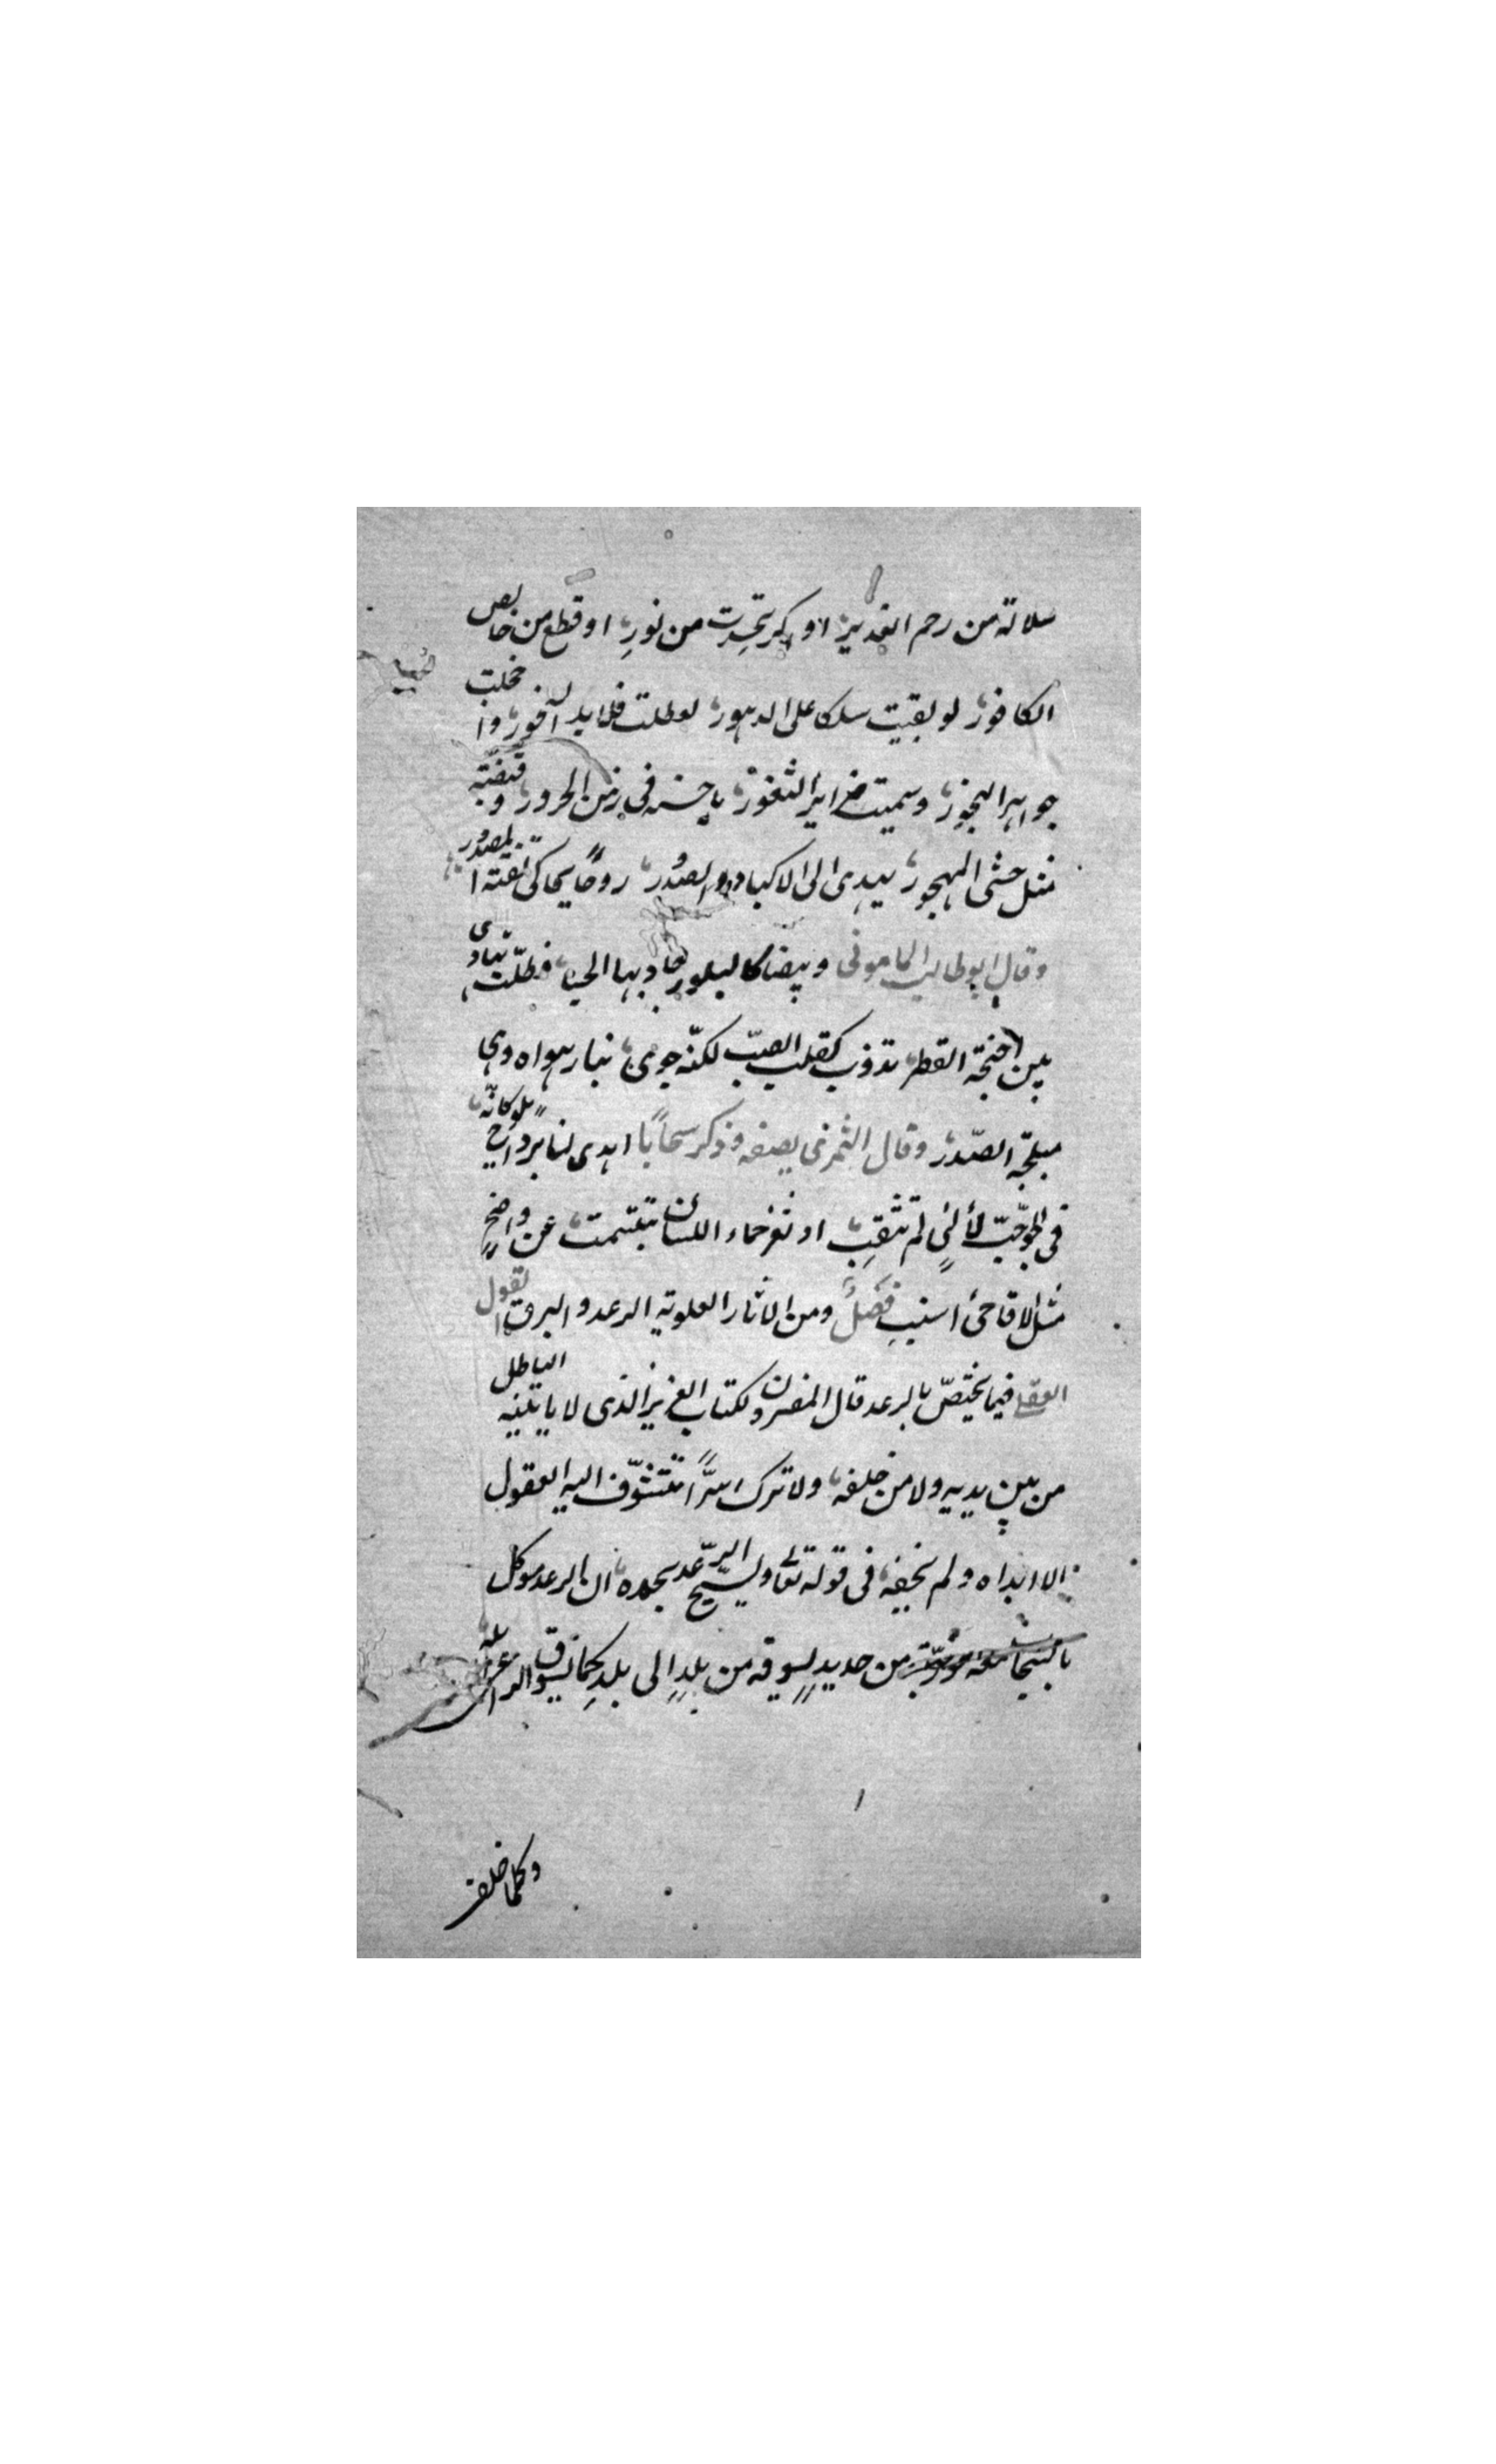 سلالة من رحم الغدير، او كرة تجسدت من نور، او قطع من خالص
الكافور، لو بقيت سلكا على الدهور، لعطلت قلايد الحور، وا خجلت
جواهر البحور، وسميت ضراير الثغور، يا حسنه في زمن الحرور، و قيضته
مثل حشى المهجور، يهدى الى الاكباد والصدور، روحًا يحاكي نفثة المصدور،
وقال ابو طالب المامونى وبيضا كالبلور جاد بها الحيا، فظلت تهادى
بين اجنحة القطر، تذوب كقلب الصب لكنه جوى، بنار هواه وهى
مبلجة الصدر، وقال الثمرى يصفه وذكر سحابًا اهدى لنا بردا يلوح كانه
فى الجو حب لألئٍ لم تثقب، او ثغر حماء اللسان تبسمت، عن واضحٍ
مثل الاقاحى اشنب فصلٌ ومن الاثار العلوية الرعد والبرق القول
فيما يختصّ بالرعد قال المفسرون لكتاب العزيز الذى لا ياتيه الباطل
من بين يديه ولا من خلفه، ولا ترك سرًّا تتشوّف اليه العقول
الا ابداه ولم يخفه، فى قوله تعالى ويسبّح الرّعد بحمده، ان الرعد موكل
بالسحاب معه من حديدٍ يسوقه من بلدٍ الى بلدٍ كما يسوق الراعى
وكلما خالف